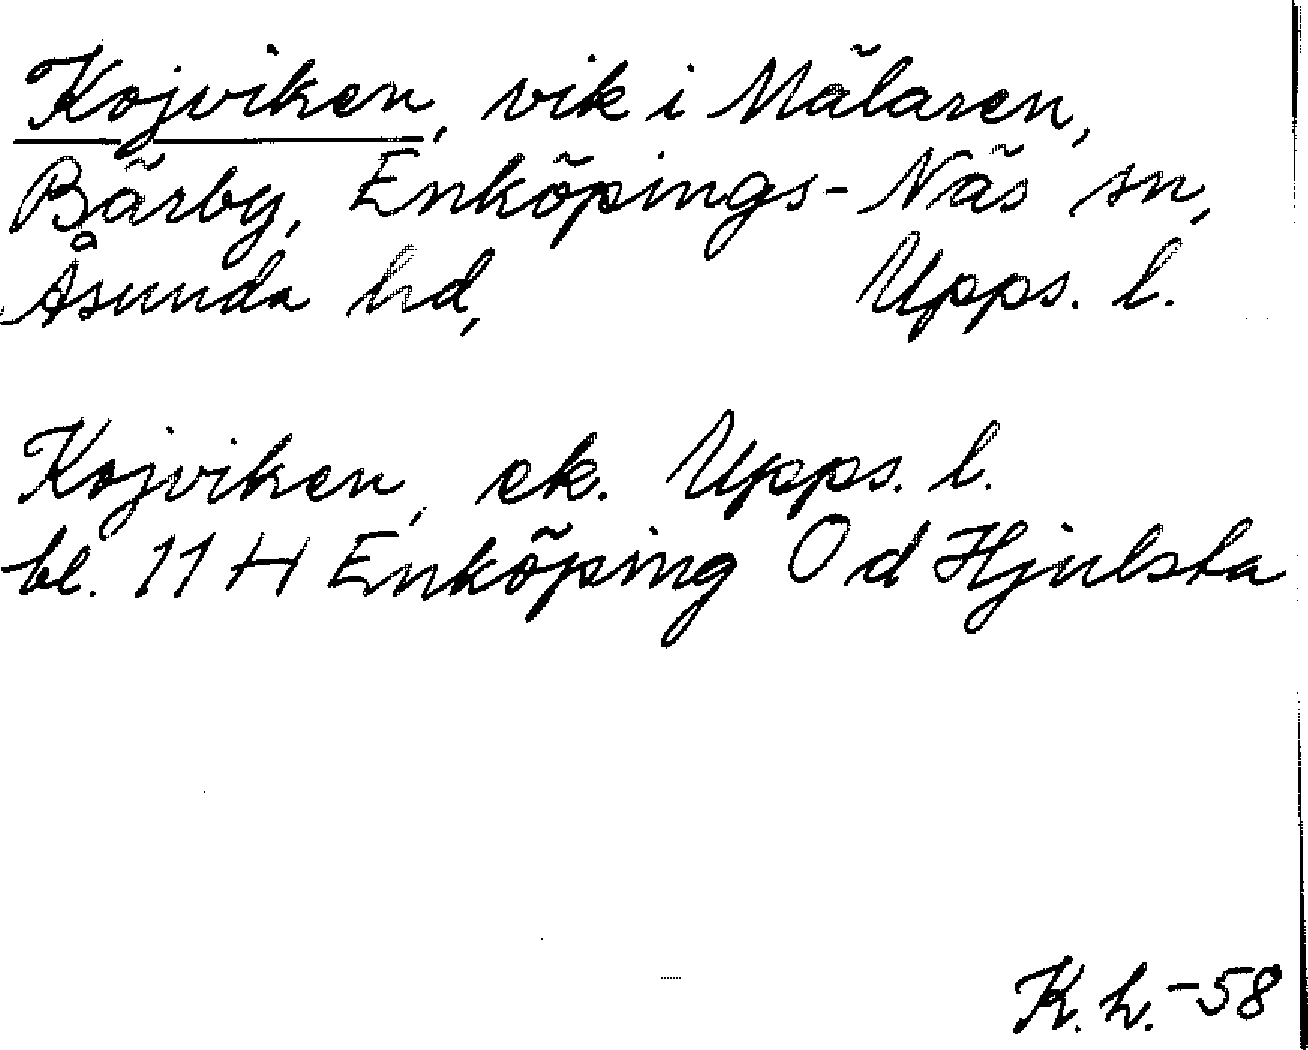 Kojviken, vik i Mälaren,
Bärby, Enköpings-Näs sn,
Åsunda hd, Upps. l.
Kojviken, ek. Upps. l.
bl. 11 H Enköping O d Hjulsta
K. h. -58